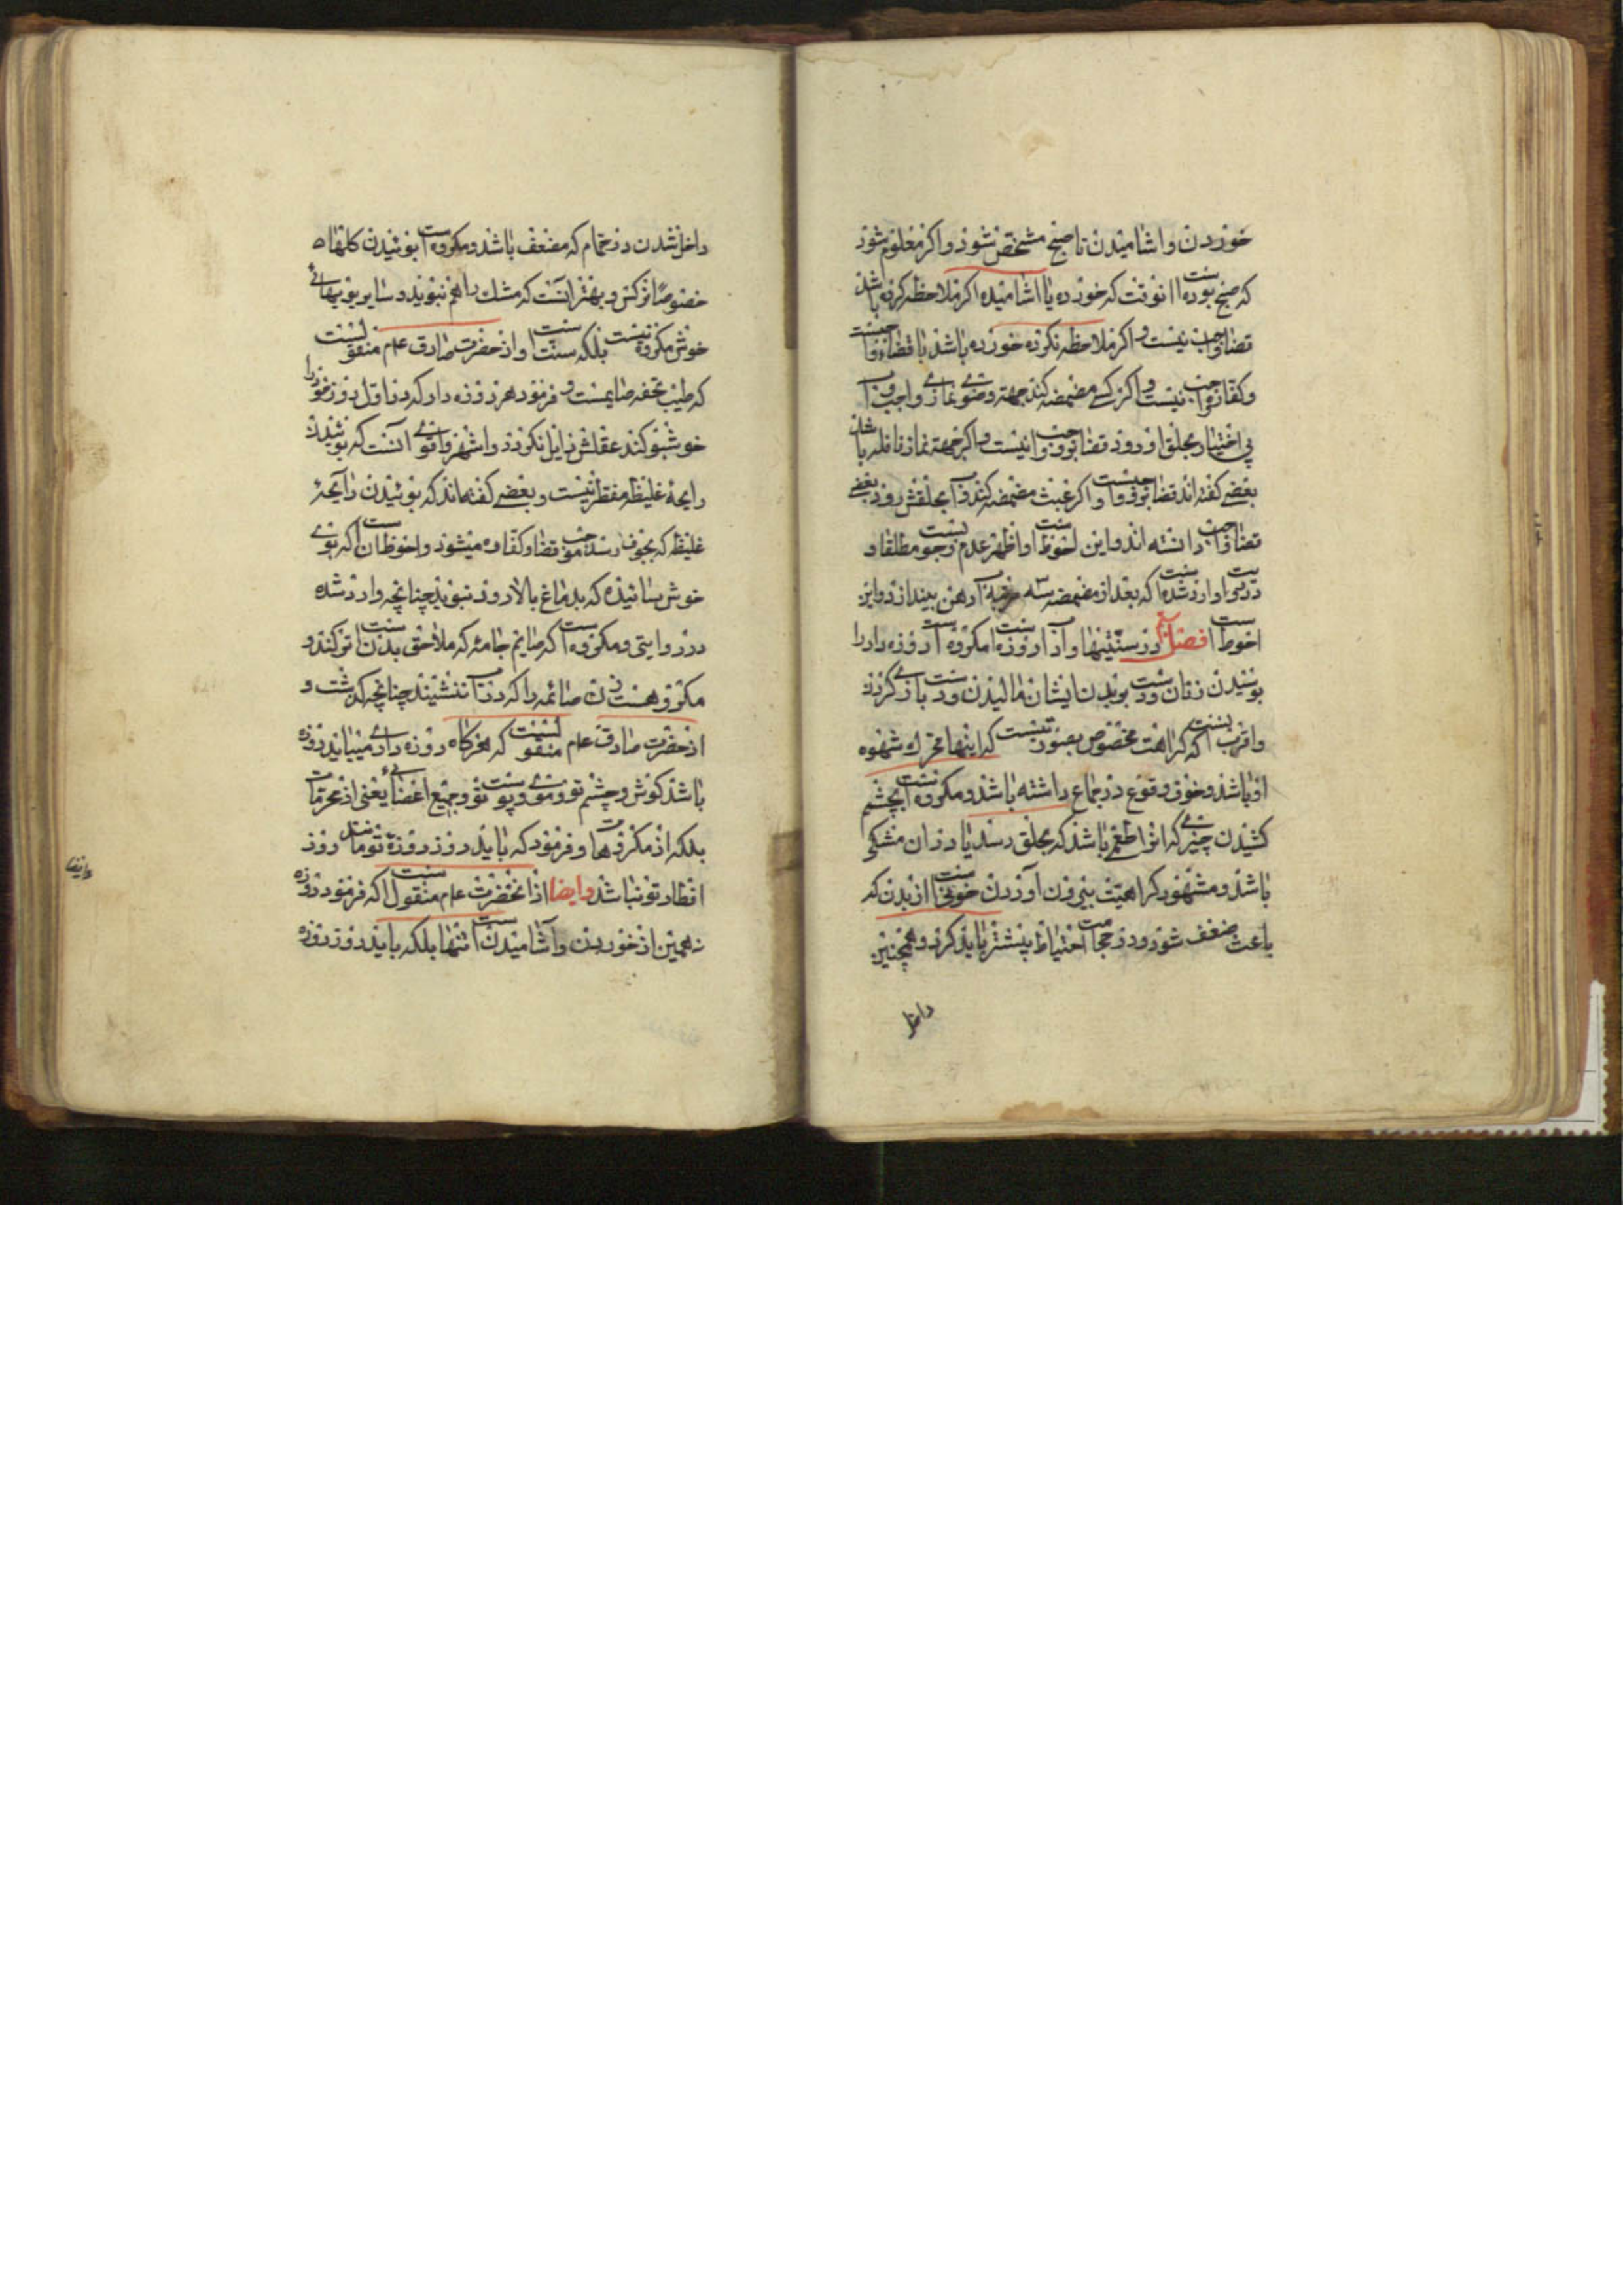 خوردن و اشامیدن تا صبح مشخص شود و اکر معلوم شود
که صبح بوده است انوقت که خورده یا اشامیده اکر ملاحظه کرده باشد
قضا واجب نیست و اکر ملاحظه نکرده خورده باشد با قضا واجبست
و کفاره واجب نیست و اکر کسی مضمضه کند جهة وضوی نمازی واجب و آب
بی اختیار بحلق او رود قضا بر او واجب نیست و اکر جهة نماز نافله باشد
بعضی کفته اند قضا بر او واجبست و اکر عبث مضمضه کند و آب بحلقش رود بعضی
قضا واجب دانسته اند و این احوط است و اظهر عدم وجوبست مطلقا و
در وارد شده است که بعد از مضمضه سه مرتبه آب دهن بیندازد و این
احوط است فصل در سنتیها و آداب روزه است مکروه است روزه دار را
بوسیدن زنان و دست بر بدن ایشان مالیدن و دست بازی کردن
و اقرب انست که کراهت مخصوص بصورتیست که اینها محرک شهوه
او باشد و خوف وقوع در جماع داشته باشد و مکروه است بچشم
کشیدن چیزی که انرا طعمی باشد که بحلق رسد یا در ان مشکی
باشد و مشهور کراهیت بیرون آوردن خونی است از بدن که
باعث ضعف شود و در حجامت احتیاط بیشتر باید کرد و همچنین
داخل
داخل شدن در حمام که مضعف باشد و مکروه است بوئیدن کلها
خصوصا نرکس و بهتر انست که مشک را هم نبوید و سایر بویهای
خوش مکروه نیست بلکه سنت است و از حضرت صادق عام منقولست
که طیب تحفه صایمست و فرمود هر روزه دار که در اول روز خود را
خوشبو کند عقلش زایل نکردد و اشهر و اقوی آنست که بوئیدن
رایحهٔ غلیظه مفطر نیست و بعضی کفته اند که بوئیدن رایحهٔ
غلیظه که بجوف رسد موجب قضا و کفاره میشود و احوط ان است که بوی
خوش رسانیده که بدماغ بالا رود نبوید چنانچه وارد شده
در روایتی و مکروه است که صایم جامهٔ که ملاحق بدن است تر کند و
مکروهست زن صائمه را که در آب ننشیند چنانچه کذشت و
از حضرت صادق عام منقولست که هرکاه روزه داری میباید روزه
باشد کوش و چشم تو و موی و پوست تو و جمیع اعضای یعنی از محرمات
بلکه از مکروهات و فرمود که باید روز روزهٔ تو مانند روز
افطار تو نباشد و ایضا از انحضرت عام منقول است که فرمود روزه
نه همین از خوردن و آشامیدن است تنها بلکه باید در روز روزه